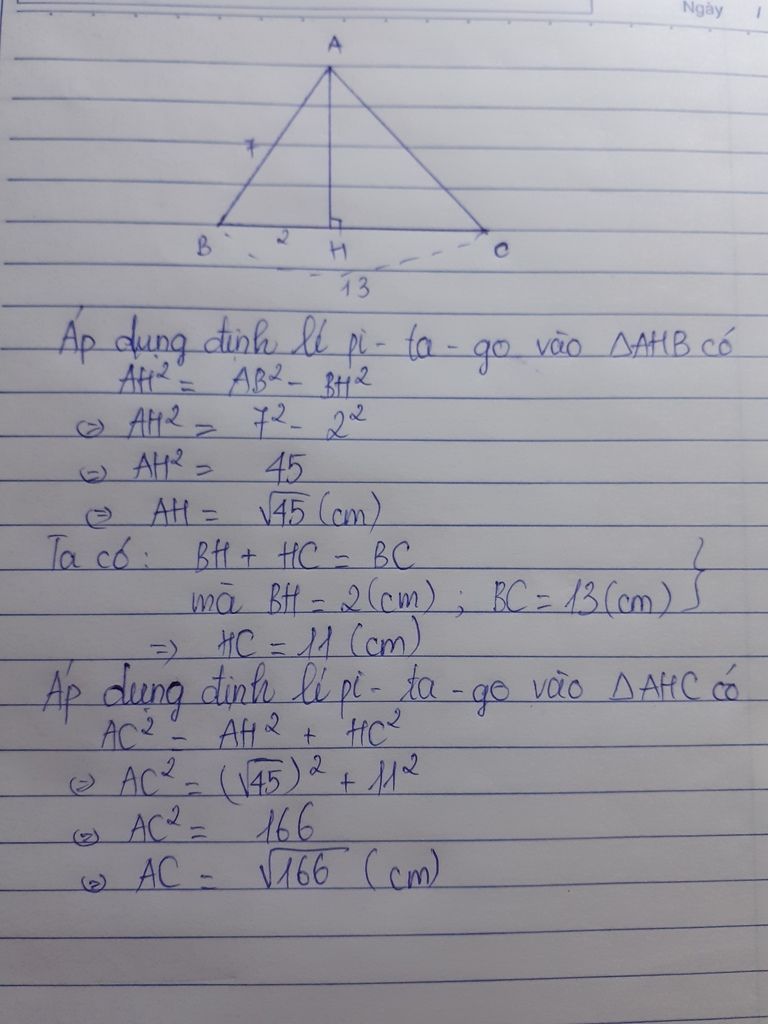 Ngày /
A
7
B 2 H C
13
Áp dụng định lí pi-ta-go vào ΔAHB có
AH² = AB² - BH²
⇔ AH² = 7² - 2²
⇔ AH² = 45
⇔ AH = √45 (cm)
Ta có: BH + HC = BC
mà BH = 2 (cm) ; BC = 13 (cm) }
⇒ HC = 11 (cm)
Áp dụng định lí pi-ta-go vào ΔAHC có
AC² = AH² + HC²
⇔ AC² = (√45)² + 11²
⇔ AC² = 166
⇔ AC = √166 (cm)